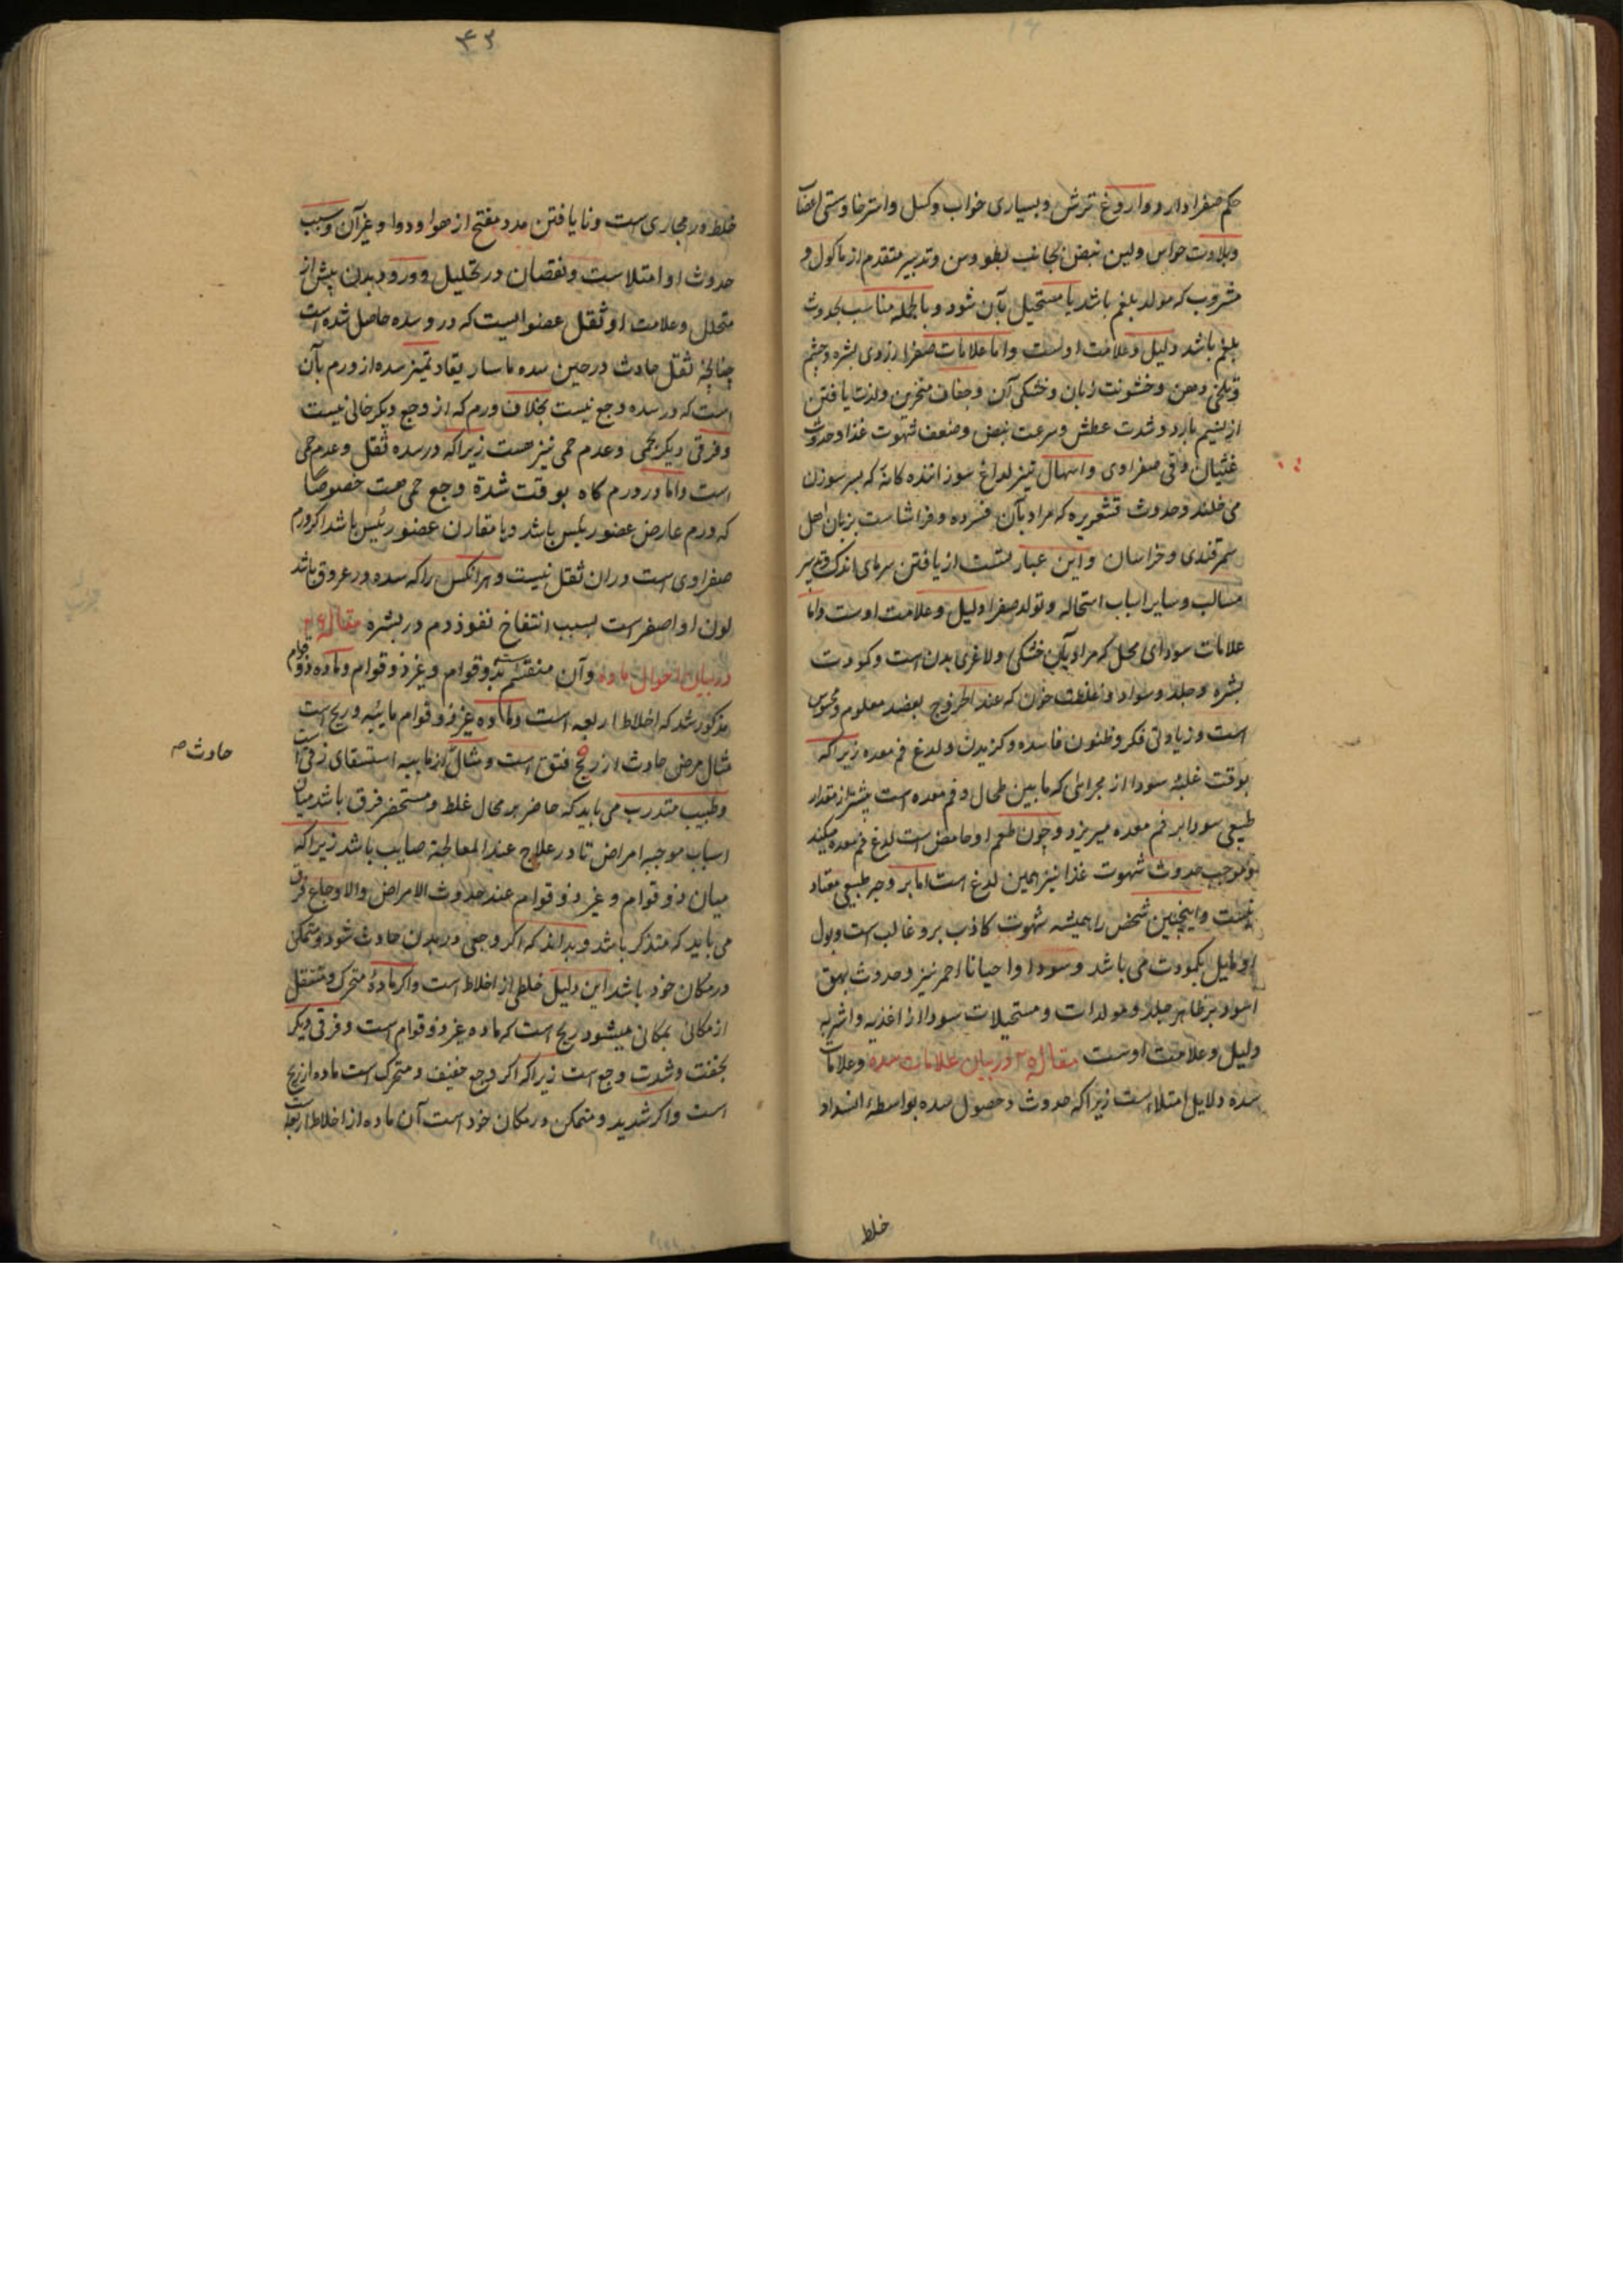 حکم صفرا دارد و اروغ ترش و بسیاری خواب و کسل و استرخا و سستی اعضا
و بلادت حواس ولین نبض بجانب بطو وسن و تدبیر متقدم از ماکول و
مشروب که مولد بلغم باشد یا مستحیل بآن شود و بالجمله مناسب بحدوث
بلغم باشد دلیل و علامت اوست واما علامات صفرا زردی بشره و چشم
و تلخی دهن و خشونت زبان و خشکی آن و جفاف منخرین ولذت یافتن
از نسیم بارد و شدت عطش و سرعت نبض و ضعف شهوت غذا و حدوث
غثیان وقی صفراوی و اسهال تیز لداغ سوزاننده کانه که بسر سوزن
می خلند و حدوث قشعریره که مراد بآن فسرده و فراشاست بزبان اهل
سمرقندی و خراسان و این عبارتست از یافتن سرمای اندک
و سایر اسباب استحاله و تولد صفرا دلیل و علامت اوست واما
علامات سودای محل که مراد بآن خشکی ولاغری بدن است و کمودت
بشره و جلد و سواد و غلظت خون که عند الخروج بفصد معلوم و محسوس
است و زیادتی فکر و ظنون فاسده و کزیدن ولدغ فم معده زیراکه
بوقت غلبهٔ سودا از مجرائی که مابین طحال و فم معده است بیشتر از مقدار
طبیعی سودا بر فم معده میریزد و چون طعم او حامض است لدغ فم معده میکند
و موجب حدوث شهوت غذا نیز همین لدغ است اما بر وجه طبیعی معتاد
نیست و اینچنین شخص را همیشه شهوت کاذب برو غالب است و بول
او مایل بکمودت می باشد و سودا و احیانا احمر نیز و حدوث بهق
اسود بر ظاهر جلد و مولدات و مستحیلات سودا از اغذیه و اشربه
دلیل و علامت اوست مقاله در بیان علامات سده و علامات
سده دلایل امتلاء است زیراکه حدوث و حصول سده بواسطهٔ انسداد
خلط
۴۲
خلط در مجاری است و نایافتن مدد مفتح از هوا و دوا و غیر آن و سبب
حدوث او امتلاست و نقصان در تحلیل و ورود بدن پیش از
متحلل و علامت او ثقل عضوایست که در و سده حاصل شده است
چنانچه ثقل حادث در حین سده ماساریقا و تمیز سده از ورم بآن
است که در سده وجع نیست بخلاف ورم که از وجع دیکر خالی نیست
و فرقی دیکر بحمی و عدم حمی نیز هست زیراکه در سده ثقل و عدم حمی
است واما در ورم کاه بوقت شدة وجع حمی هست خصوصاً
که ورم عارض عضو رئیس باشد و یا مقارن عضو رئیس باشد اکر ورم
صفراوی است دران ثقل نیست و هر انکس را که سده در عروق باشد
لون او اصفر است بسبب انتفاخ نفوذ دم در بشره مقاله
در بیان احوال ماده و آن منقسم بذو قوام و غیر ذو قوام و ماده ذو قوام
مذکور شد که اخلاط اربعه است و ماده غیر ذو قوام مائیه و ریح است
مثال مرض حادث از ریح فتق است و مثال از مائیه استسقای زقی است
حادث صـ
و طبیب متدرب می باید که حاضر بر محال غلط و مستحضر فرق باشد میان
اسباب موجبه امراض تا در علاج عند المعالجه صایب باشد زیراکه
میان ذو قوام و غیر ذو قوام عند حدوث الامراض والاوجاع فرق
می باید که متذکر باشد و بداند که اکر وجعی در بدن حادث شود و متمکن
در مکان خود باشد این دلیل خلطی از اخلاط است و اکر مادهٔ متحرک و منتقل
از مکانی بمکانی میشود ریح است که ماده غیر ذو قوام است و فرقی دیکر
بخفت و شدت وجع است زیراکه اکر وجع خفیف و متحرک است ماده از ریح
است و اکر شدید و متمکن در مکان خود است آن ماده از اخلاط اربعه است